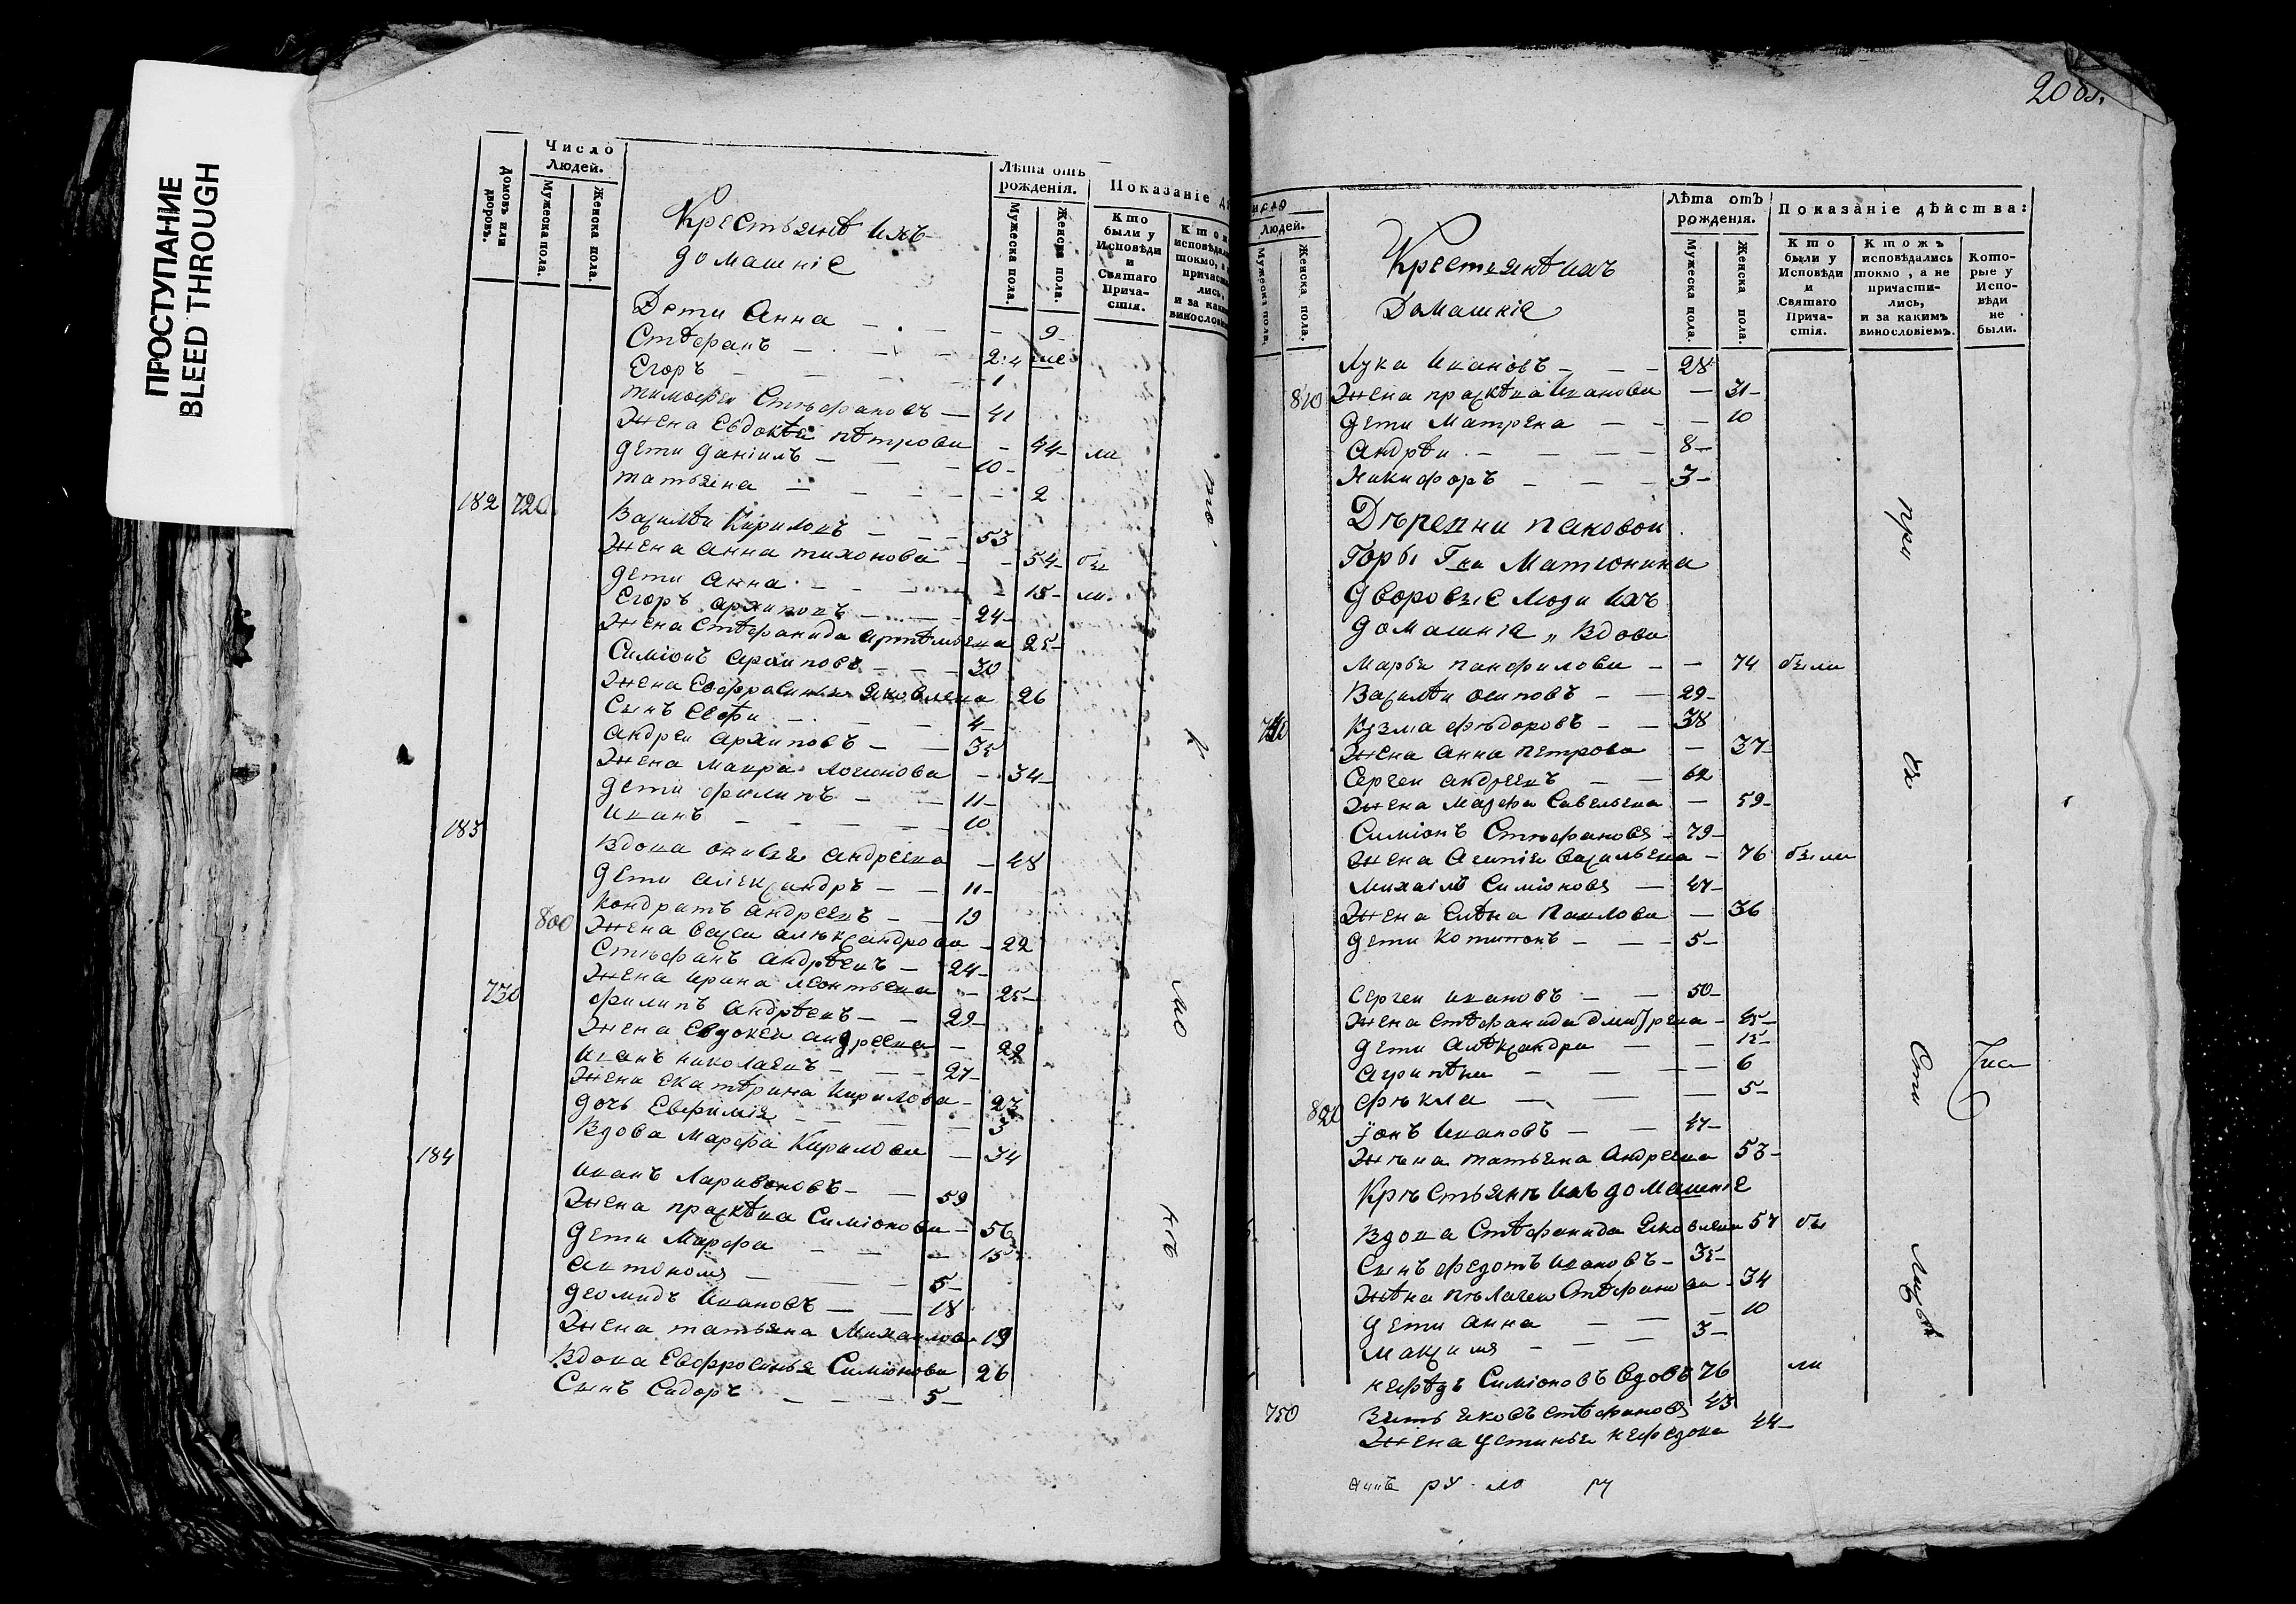 ПРОСТУПАНИЕ
BLEED THROUGH
Число
Людей.
Домовъ или дворовъ.
Мужеска пола.
Женска пола.
Крестьянѣ ихъ
домашніе
Лѣта отъ
рожденія.
Мужеска пола.
Женска пола.
Показаніе
Кто
были у
Исповѣди
и
Святаго
Прича-
стія.
Дети Анна — 9
Стѣфанъ — 2
Егоръ — 1
тимофеи Стѣфановъ — 41
Жена Евдокѣя пѣтрова — 44 ли
дети даніилъ — 10
татьяна — 2
182 720
Василѣи Кириловъ — 53
Жена анна тихонова — 54 бы
дети анна — 15 ли
Егоръ архиповъ — 24
Жена Стѣфанида артѣмьева 25
Симіонъ архиповъ — 30
Жена Евфросинья Яковлева 26
Сынъ Евфи — 4
андреи архиповъ — 35
Жена Мавра Логинова — 34
дети филипъ — 11
иванъ — 10
183
Вдова андреева — 48
дети александръ — 11
Кондратъ андреевъ — 19
800 Жена васса алѣксандрова — 22
Стѣфанъ андрѣевъ — 24
Жена ирина леонтьева — 25
730 филипъ андрѣевъ — 29
Жена Евдокея андреева — 22
иванъ николаевъ — 27
Жена екатѣрина кирилова — 23
дочь Евфимія — 3
Вдова Марфа Кирилова — 34
184
иванъ Ларивоновъ — 59
Жена прасквѣа Симіонова — 56
дети Марфа — 15
антономъ — 5
деомидъ ивановъ — 18
Жена татьяна Михаилова 19
Вдова Евфросинья Симіонова 26
Сынъ Сидоръ — 5
20 об.
Людей.
Мужеска пола.
Женска пола.
Крестьянѣ ихъ
Домашніе
Лѣта отъ
рожденія.
Мужеска пола.
Женска пола.
Показаніе дѣйства:
Кто
были у
Исповѣди
и
Святаго
Прича-
стія.
Ктожъ
исповѣдались
токмо, а не
причасти-
лись,
и за какимъ
винословіемъ.
Кото-
рые у
Испо-
вѣди
не
были.
Лука ивановъ — 28
810 Жена прасквѣа иванова — 31
дети Матрена — 10
андрѣи — 8
Никифоръ — 3
Дѣревни паковои
Горы Гна Матюнина
дворовые люди ихъ
домашніе „ Вдова
Марья панфилова — 74 были
Василѣи осиповъ — 29
Кузма фѣдоровъ — 38
Жена анна петрова — 37
Сергеи андреевъ — 62
Жена Марфа Савельева — 59
Симіонъ Стѣфановъ — 79
Жена васильева — 76 были
Михаілъ Симіоновъ — 47
Жена Елѣна Павлова — 36
дети — 5
Сергеи ивановъ — 50
Жена стѣфанида дмитрева — 45
дети алѣксандра — 15
агрипѣна — 6
фѣкла — 5
820 іонъ ивановъ — 47
Жѣна татьяна андреева 53
Крѣстьянѣ ихъ домашніе
Вдова Стѣфанида Яковлева 57 бы
Сынъ федотъ ивановъ — 35
Жѣна пѣлагея Стѣфанова — 34
дети анна — 10
Максимъ — 3
нефѣдъ Симіоновъ вдовъ 76 ли
750 Зять яковъ стѣфановъ 43
Жена устинья нефедова 44